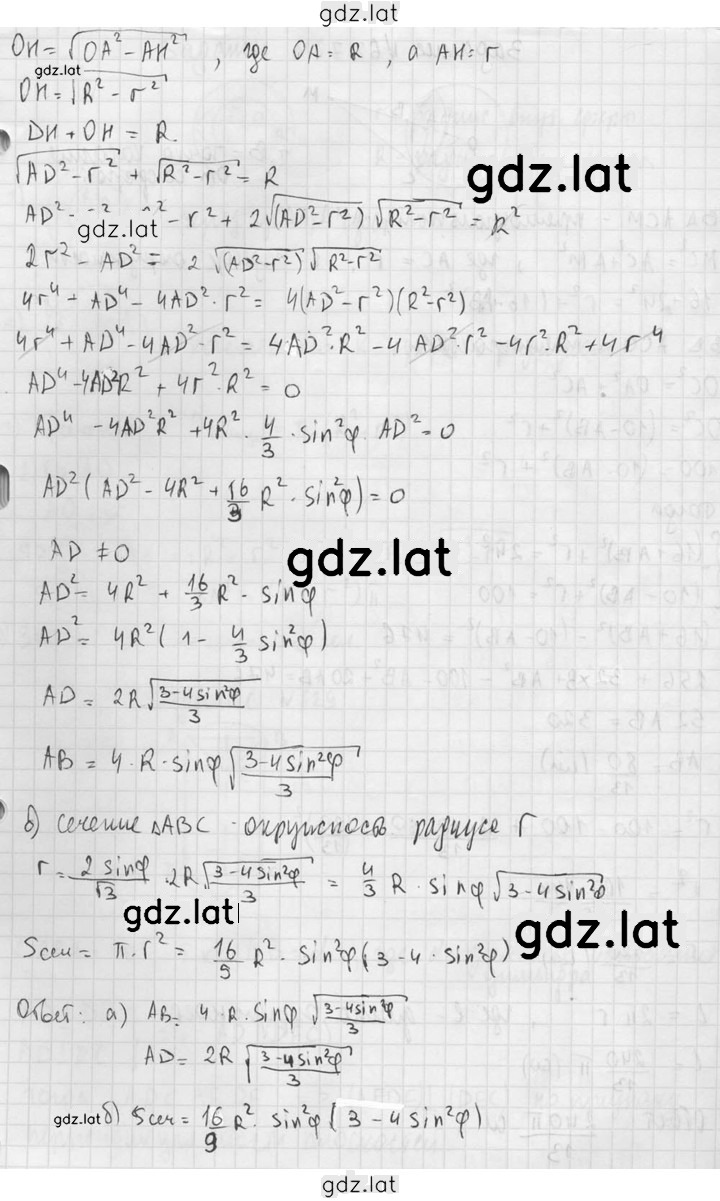 gdz.lat
OH = √(OA² - AH²), где OA = R, а AH = r
gdz.lat
OH = √(R² - r²)
DH + OH = R.
√(AD² - r²) + √(R² - r²) = R
gdz.lat
AD² - r² + 2√(AD² - r²) √(R² - r²) = R²
gdz.lat
2r² - AD² = 2√(AD² - r²) √(R² - r²)
4r⁴ + AD⁴ - 4AD² · r² = 4(AD² - r²)(R² - r²)
4r⁴ + AD⁴ - 4AD² · r² = 4AD² · R² - 4AD² · r² - 4r² · R² + 4r⁴
AD⁴ - 4AD²R² + 4r² · R² = 0
AD⁴ - 4AD²R² + 4R² · 4/3 · sin²φ · AD² = 0
AD²(AD² - 4R² + 16/3 R² · sin²φ) = 0
AD ≠ 0
gdz.lat
AD² = 4R² + 16/3 R² · sinφ
AD² = 4R²(1 - 4/3 sin²φ)
AD = 2R √((3-4sin²φ)/3)
AB = 4 · R · sinφ √((3-4sin²φ)/3)
б) сечение ΔABC - окружность радиуса r
r = 2 sinφ/√3 · 2R √((3-4sin²φ)/3) = 4/3 R · sinφ √(3-4sin²φ)
gdz.lat
gdz.lat
Sсеч = π · r² = 16/9 R² · sin²φ(3 - 4 · sin²φ)
Ответ: а) AB = 4 · R · sinφ √((3-4sin²φ)/3)
AD = 2R √((3-4sin²φ)/3)
gdz.lat
б) Sсеч = 16/9 R² · sin²φ(3 - 4sin²φ)
gdz.lat